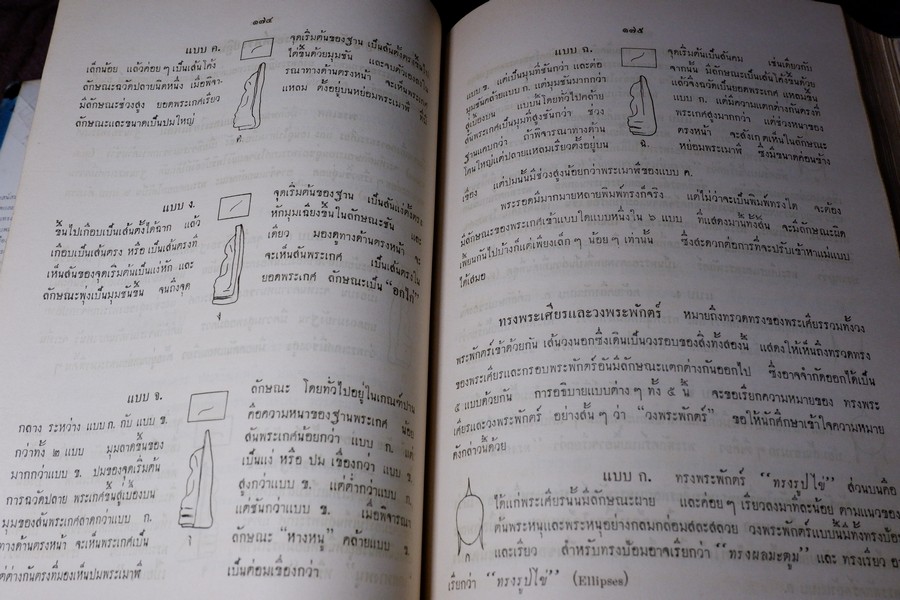 ๑๗๔
แบบ ค. จุดเริ่มต้นของฐาน เป็นสันตั้งตรงขึ้นไป
เล็กน้อย แล้วค่อยๆ เป็นเส้นโค้ง ได้ขึ้นด้วยมุมชัน และจบตัวเองลงใน
ลักษณะฉวัดปลายนิดหนึ่ง เมื่อพิจา- รณาทางด้านตรงหน้า จะเห็นพระเกศ
มีลักษณะช่วงสูง ยอดพระเกศเรียว แหลม ตั้งอยู่บนหย่อมพระเมาฬี ที่มี
ลักษณะและขนาดเป็นปมใหญ่
ค
แบบ ง. จุดเริ่มต้นของฐาน เป็นสันแง่ตั้งตรง
ขึ้นไปเกือบเป็นเส้นตั้งได้ฉาก แล้ว หักมุมเฉียงขึ้นในลักษณะชัน และ
เกือบเป็นเส้นตรง หรือ เป็นเส้นตรงก็ เดียว มองดูทางด้านตรงหน้า จะ
เห็นสันของจุดเริ่มต้นเป็นแง่หัก และ จะเห็นสันพระเกศ เป็นเส้นตรงใน
ลักษณะพุ่งเป็นมุมชันขึ้น จนถึงจุด ยอดพระเกศ ลักษณะเป็น "อกไก่"
ง
แบบ จ. ลักษณะ โดยทั่วไปอยู่ในเกณฑ์ปาน
กลาง ระหว่าง แบบ ก. กับ แบบ ข. คือความหนาของฐานพระเกศ น้อย
กว่าทั้ง ๒ แบบ มุมลาดขึ้นของ สันพระเกศน้อยกว่า แบบ ก. แต่
มากกว่าแบบ ข. ปมของจุดเริ่มต้น เป็นแง่ หรือ ปม เขื่องกว่า แบบ ข.
การฉวัดปลาย พระเกศขึ้นสู่เบื้องบน สูงกว่าแบบ ข. แต่ต่ำกว่าแบบ ก.
มุมของสันพระเกศลาดกว่าแบบ ก. แต่ชันกว่าแบบ ข. เมื่อพิจารณา
ทางด้านตรงหน้า จะเห็นพระเกศเป็น ลักษณะ "หางหนู" คล้ายแบบ ข.
แต่ต่างกันตรงที่มองเห็นปมพระเมาฬี เป็นต่อมเขื่องกว่า
จ
๑๗๕
แบบ ฉ. จุดเริ่มต้นเป็นสันคม เช่นเดียวกับ
แบบ ข. แต่เป็นมุมที่ชันกว่า และต่อ จากนั้น มีลักษณะเป็นเส้นโค้งขึ้นด้วย
มุมชันคล้ายแบบ ก. แต่มุมมากกว่า แล้วจึงฉวัดเป็นยอดพระเกศ แหลมขึ้น
สู่เบื้องบน แบบนี้โดยทั่วไปคล้าย แบบ ก. แต่มีความแตกต่างกันตรงที่
สันพระเกศเป็นมุมที่สูงชันกว่า ช่วง พระเกศสูงมากกว่า แต่ช่วงหนาของ
ฐานแคบกว่า ถ้าพิจารณาทางด้าน ตรงหน้า จะสังเกตเห็นในลักษณะ
โคนใหญ่แต่ปลายแหลมเรียวตั้งอยู่บน หย่อมพระเมาฬี ซึ่งมีขนาดค่อนข้าง
ฉ.
เขื่อง แต่ปมนั้นมีช่วงสูงน้อยกว่าพระเมาฬีของแบบ ค.
พระรอดมีมากมายหลายพิมพ์ทรงก็จริง แต่ไม่ว่าจะเป็นพิมพ์ทรงใด จะต้อง
มีลักษณะของพระเกศเข้าแบบใดแบบหนึ่งใน ๖ แบบ ที่แสดงมานี้ทั้งสิ้น จะมีลักษณะผิด
เพี้ยนกันไปบ้างก็แต่เพียงเล็กๆ น้อยๆ เท่านั้น ซึ่งสะดวกต่อการที่จะปรับเข้าหาแม่แบบ
ได้เสมอ
ทรงพระเศียรและวงพระพักตร์ หมายถึงทรวดทรงของพระเศียรรวมทั้งวง
พระพักตร์เข้าด้วยกัน เส้นวงนอกซึ่งเดินเป็นวงรอบของสิ่งทั้งสองนี้ แสดงให้เห็นถึงทรวดทรง
ของพระเศียรและกรอบพระพักตร์อันมีลักษณะแตกต่างกันออกไป ซึ่งอาจจำกัดออกได้เป็น
๕ แบบด้วยกัน การอธิบายแบบต่างๆ ทั้ง ๕ นี้ จะขอเรียกความหมายของ ทรงพระ
เศียรและวงพระพักตร์ อย่างสั้นๆ ว่า "วงพระพักตร์" ขอให้นักศึกษาเข้าใจความหมาย
ดังกล่าวนี้ด้วย
แบบ ก. ทรงพระพักตร์ "ทรงรูปไข่" ส่วนบนคือ
ได้แก่พระเศียรนั้นมีลักษณะผาย และค่อยๆ เรียวลงมาทีละน้อย ตามแนวของ
ต้นพระหนุและพระหนุอย่างกลมกล่อมสละสลวย วงพระพักตร์แบบนี้มีทั้งทรงป้อม
และเรียว สำหรับทรงป้อมอาจเรียกว่า "ทรงผลมะตูม" และ ทรงเรียว
ก
เรียกว่า "ทรงรูปไข่" (Ellipses)